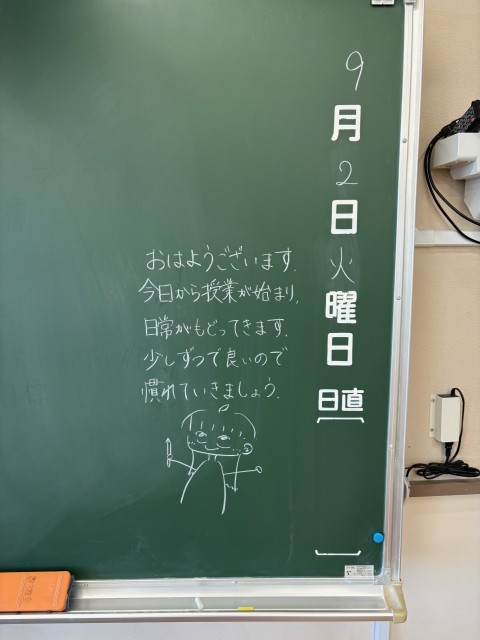 9月2日火曜日
日直
おはようございます.
今日から授業が始まり,
日常がもどってきます.
少しずつで良いので
慣れていきましょう.